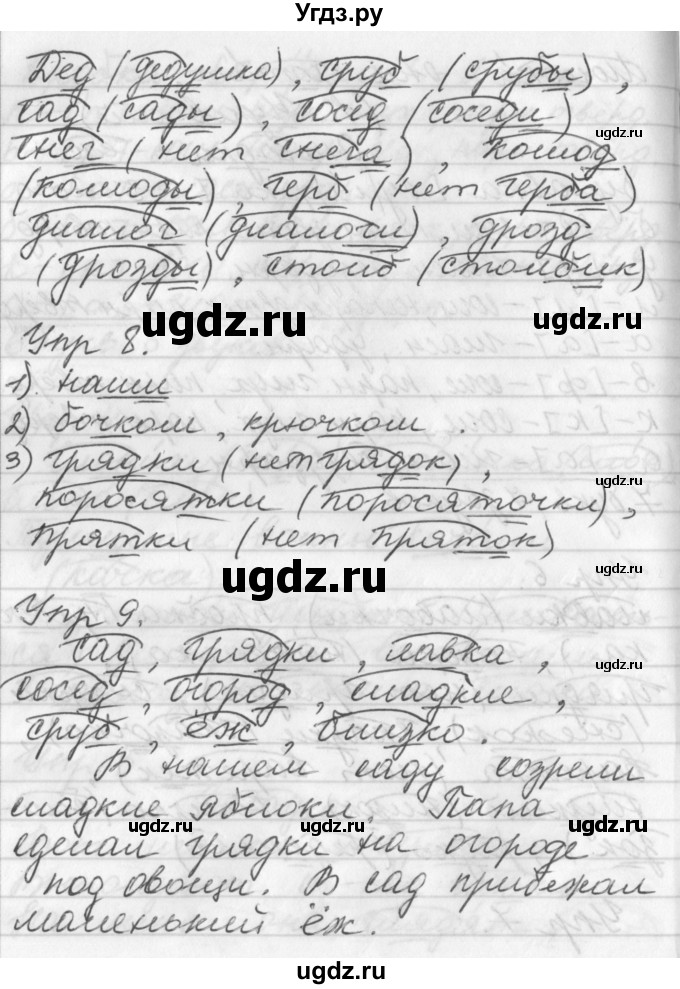 Угдз.ру
Дед (дедушка), сруб (срубы),
сад (сады), сосед (соседи)
снег (нет снега), комод
(комоды), герб (нет герба)
диалог (диалоги), дрозд
(дрозды), столб (столбик)
Упр 8.
1). наши
2) бочком, крючком.
3) грядки (нет грядок),
поросятки (поросяточки),
прятки (нет пряток)
Упр 9.
Сад, грядки, лавка,
сосед, огород, сладкие,
сруб, ёж, близко.
В нашем саду созрели
сладкие яблоки. Папа
сделал грядки на огороде
под овощи. В сад прибежал
маленький ёж.
ugdz.ru
ugdz.ru
ugdz.ru
ugdz.ru
ugdz.ru
ugdz.ru
ugdz.ru
ugdz.ru
ugdz.ru
ugdz.ru
ugdz.ru
ugdz.ru